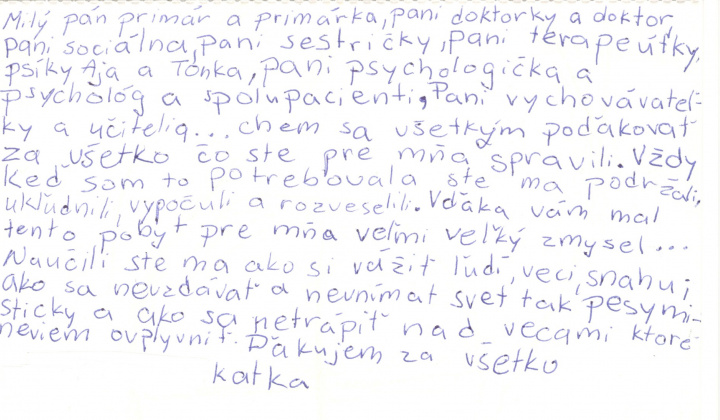 Milý pán primár a primárka, pani doktorky a doktor,
pani sociálna, pani sestričky, pani terapeútky,
psíky Aja a Tónka, pani psychologička a
psychológ a spolupacienti, Pani vychovávateľ-
ky a učitelia... chem sa všetkým poďakovať
za všetko čo ste pre mňa spravili. Vždy
keď som to potrebovala ste ma podržali,
ukľudnili, vypočuli a rozveselili. Vďaka vám mal
tento pobyt pre mňa veľmi veľký zmysel...
Naučili ste ma ako si vážiť ľudí, veci, snahu i
ako sa nevzdávať a nevnímať svet tak pesymi-
sticky a ako sa netrápiť nad vecami ktoré
neviem ovplyvniť. Ďakujem za všetko
Katka